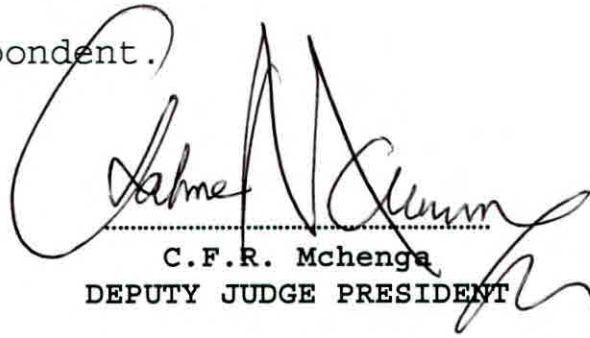 pondent.
C.F.R. Mchenga
DEPUTY JUDGE PRESIDENT